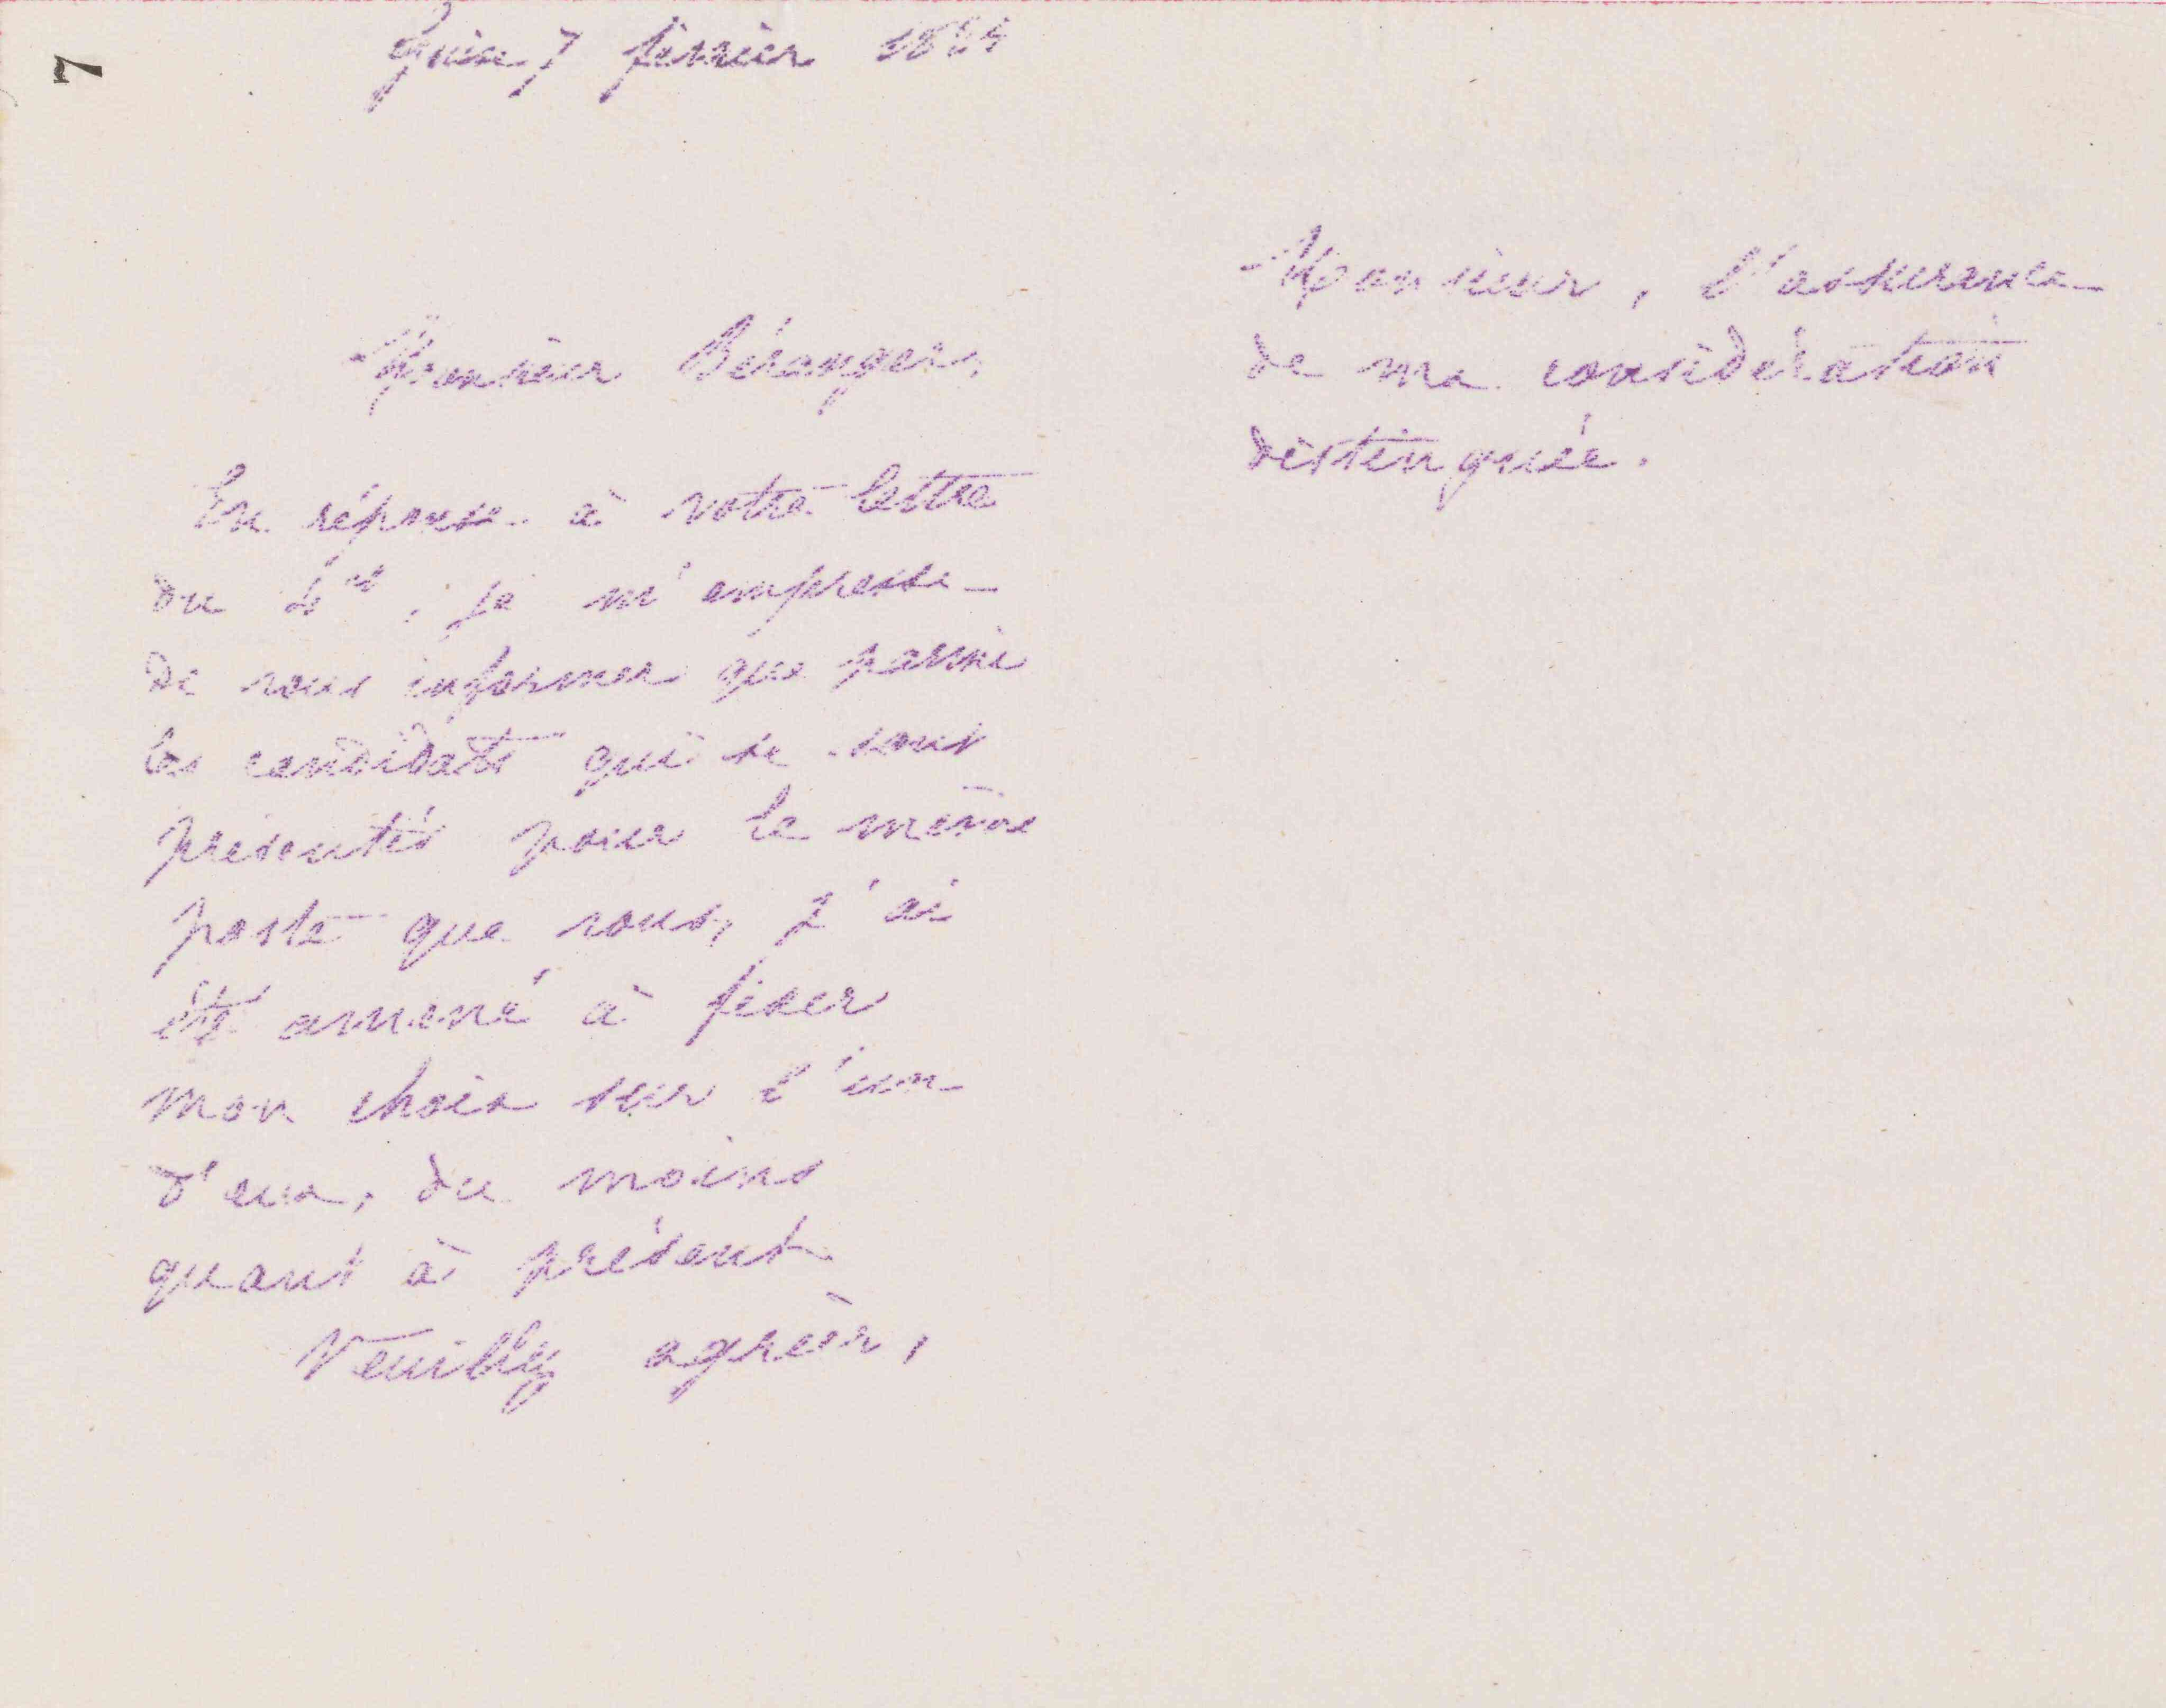 7
Guise 7 février 1884
Monsieur Béranger,
En réponse à votre lettre
du 4 ct, je m'empresse
de vous informer que parmi
les candidats qui se sont
présentés pour le même
poste que vous, j'ai
été amené à fixer
mon choix sur l'un
d'eux, du moins
quant à présent
Veuillez agréer,
Monsieur, l'assurance
de ma considération
distinguée.